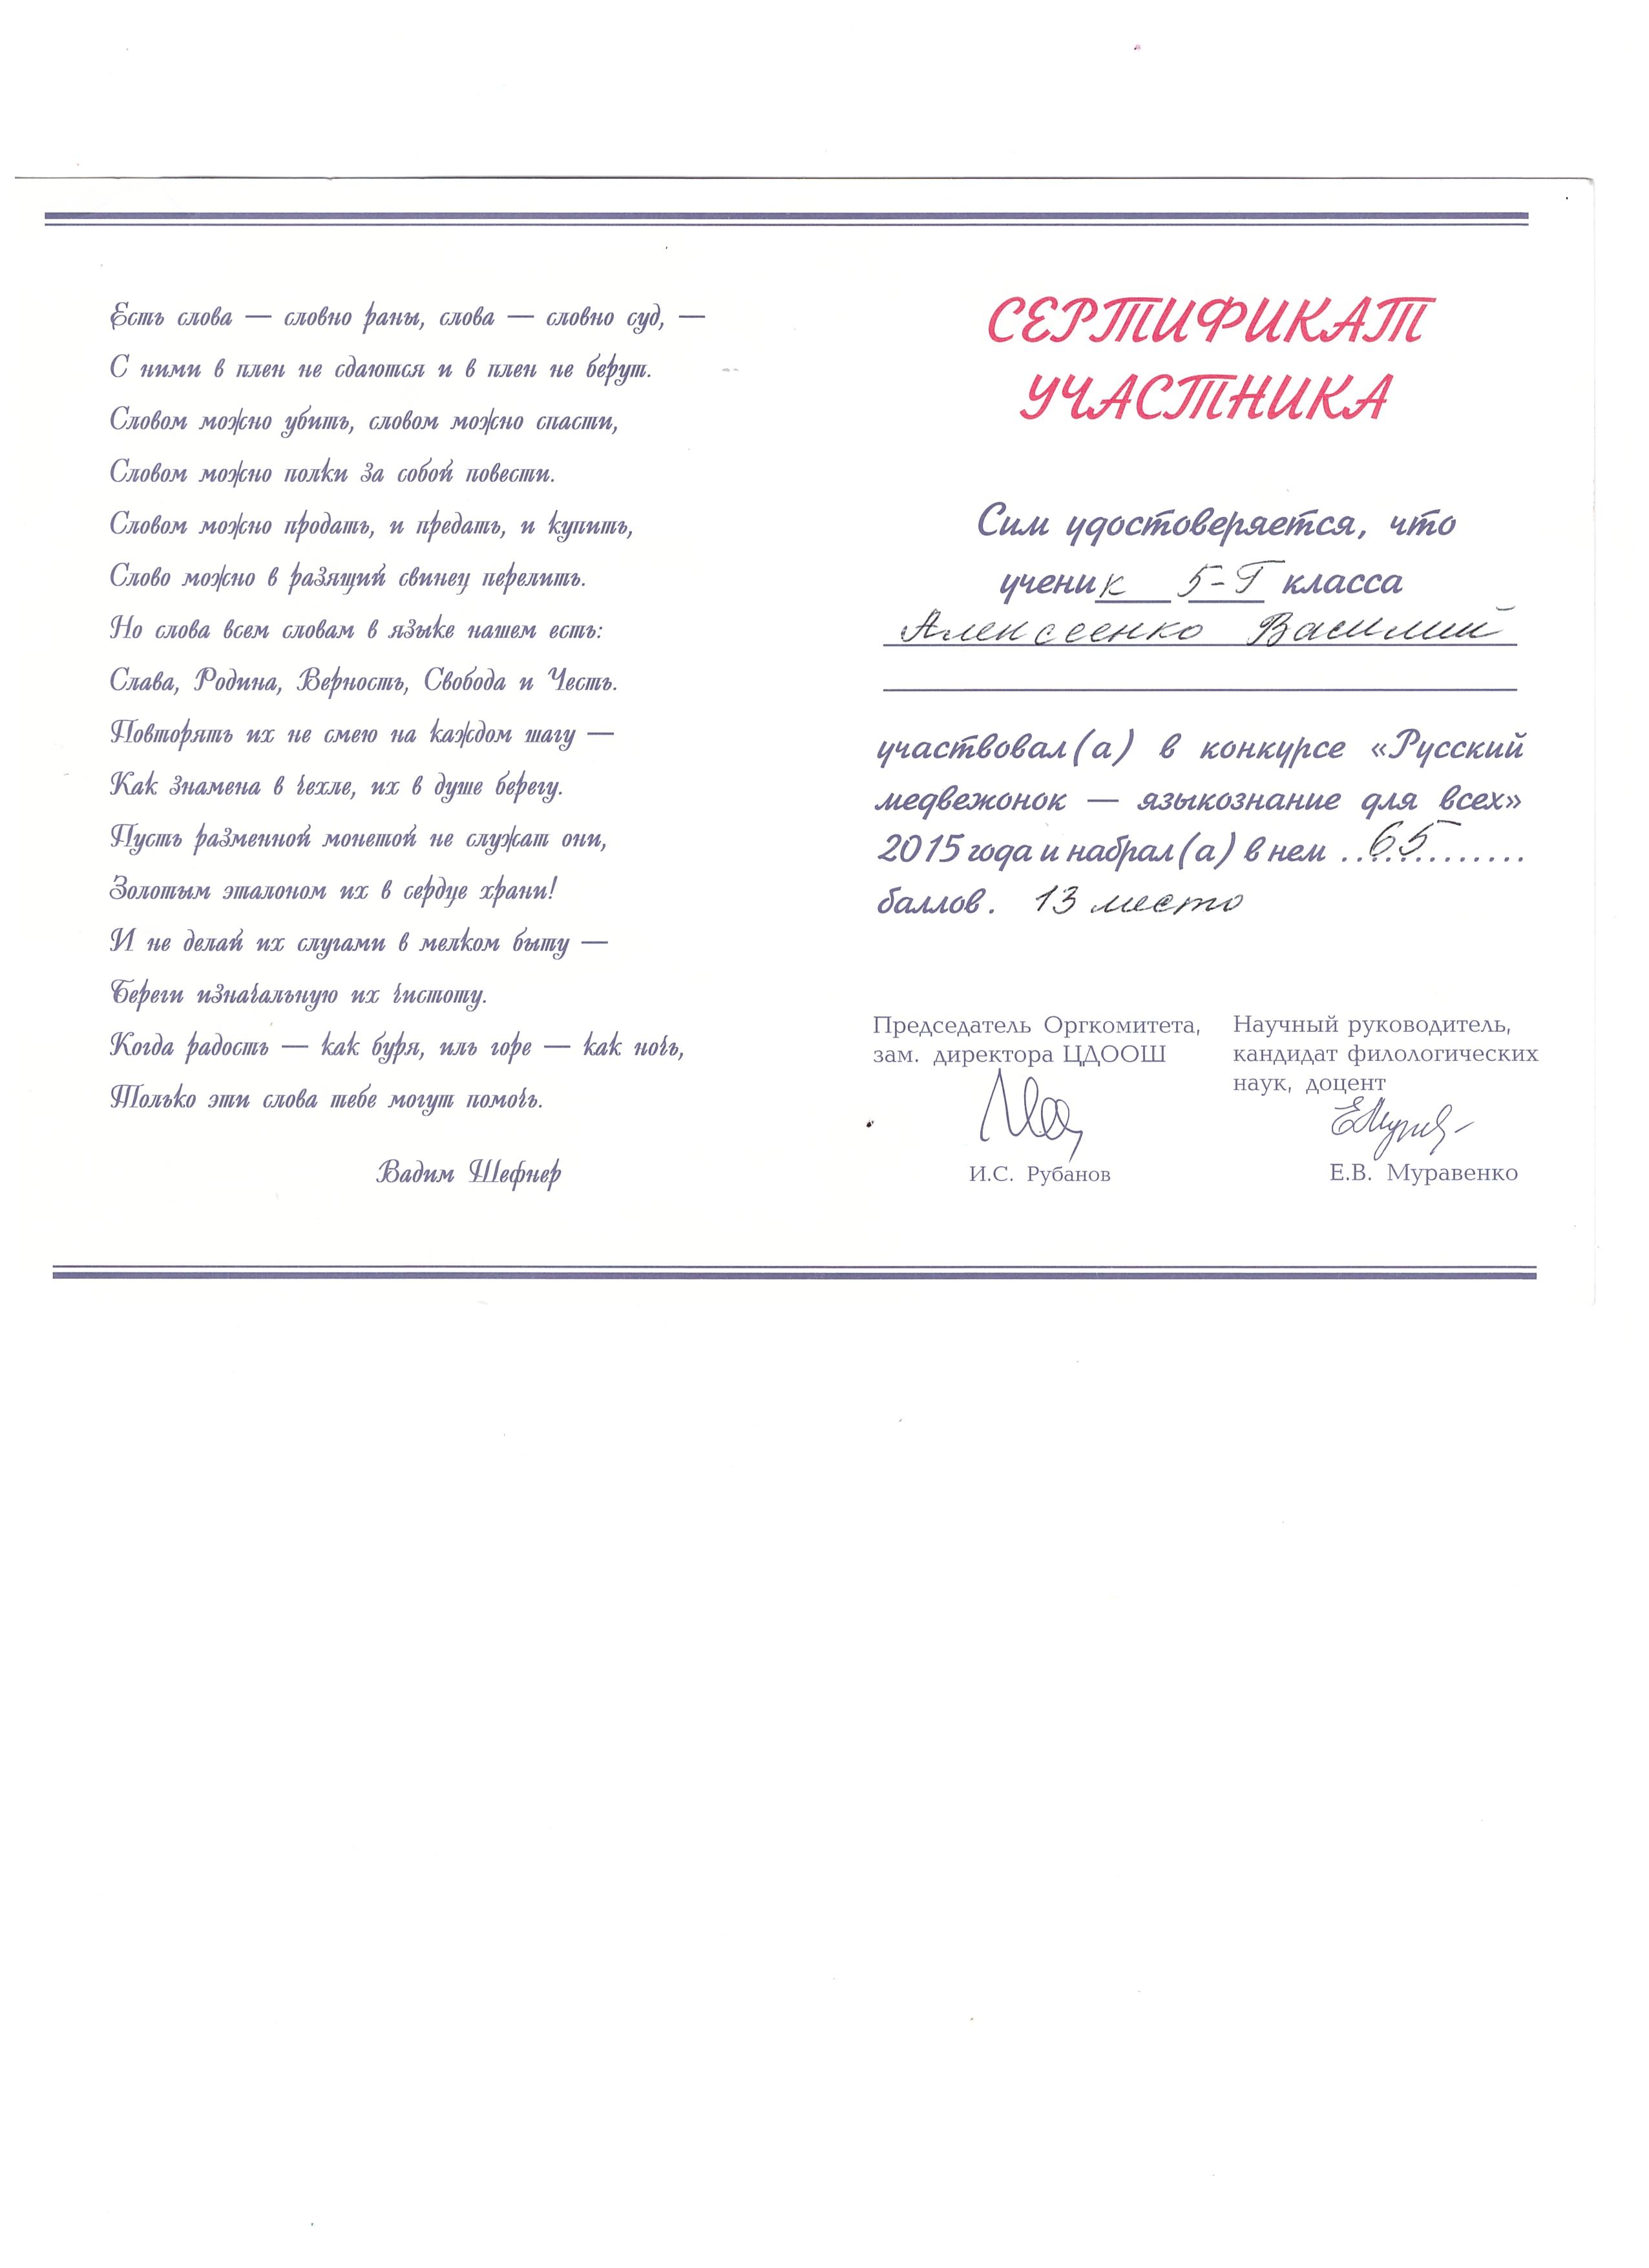 Есть слова — словно раны, слова — словно суд, —
С ними в плен не сдаются и в плен не берут.
Словом можно убить, словом можно спасти,
Словом можно полки за собой повести.
Словом можно продать, и предать, и купить,
Слово можно в разящий свинец перелить.
Но слова всем словам в языке нашем есть:
Слава, Родина, Верность, Свобода и Честь.
Повторять их не смею на каждом шагу —
Как знамена в чехле, их в душе берегу.
Пусть разменной монетой не служат они,
Золотым эталоном их в сердце храни!
И не делай их слугами в мелком быту —
Береги изначальную их чистоту.
Когда радость — как буря, иль горе — как ночь,
Только эти слова тебе могут помочь.
Вадим Шефнер
СЕРТИФИКАТ
УЧАСТНИКА
Сим удостоверяется, что
ученик 5-Г класса
Алексеенко Василий
участвовал(а) в конкурсе «Русский
медвежонок — языкознание для всех»
2015 года и набрал(а) в нем ..65............
баллов. 13 место
Председатель Оргкомитета,
зам. директора ЦДООШ
И.С. Рубанов
Научный руководитель,
кандидат филологических
наук, доцент
Е.В. Муравенко